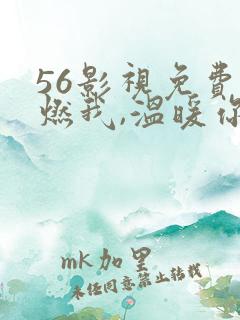 56影视免费
燃我,温暖你
mk加里
未经同意禁止转载